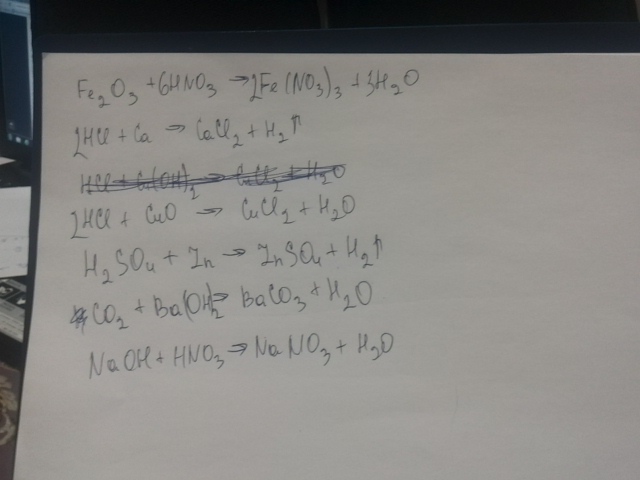 Fe₂O₃ + 6HNO₃ → 2Fe(NO₃)₃ + 3H₂O
2HCl + Ca → CaCl₂ + H₂↑
HCl + Cu(OH)₂ → CuCl₂ + H₂O
2HCl + CuO → CuCl₂ + H₂O
H₂SO₄ + Zn → ZnSO₄ + H₂↑
CO₂ + Ba(OH)₂ → BaCO₃ + H₂O
NaOH + HNO₃ → NaNO₃ + H₂O